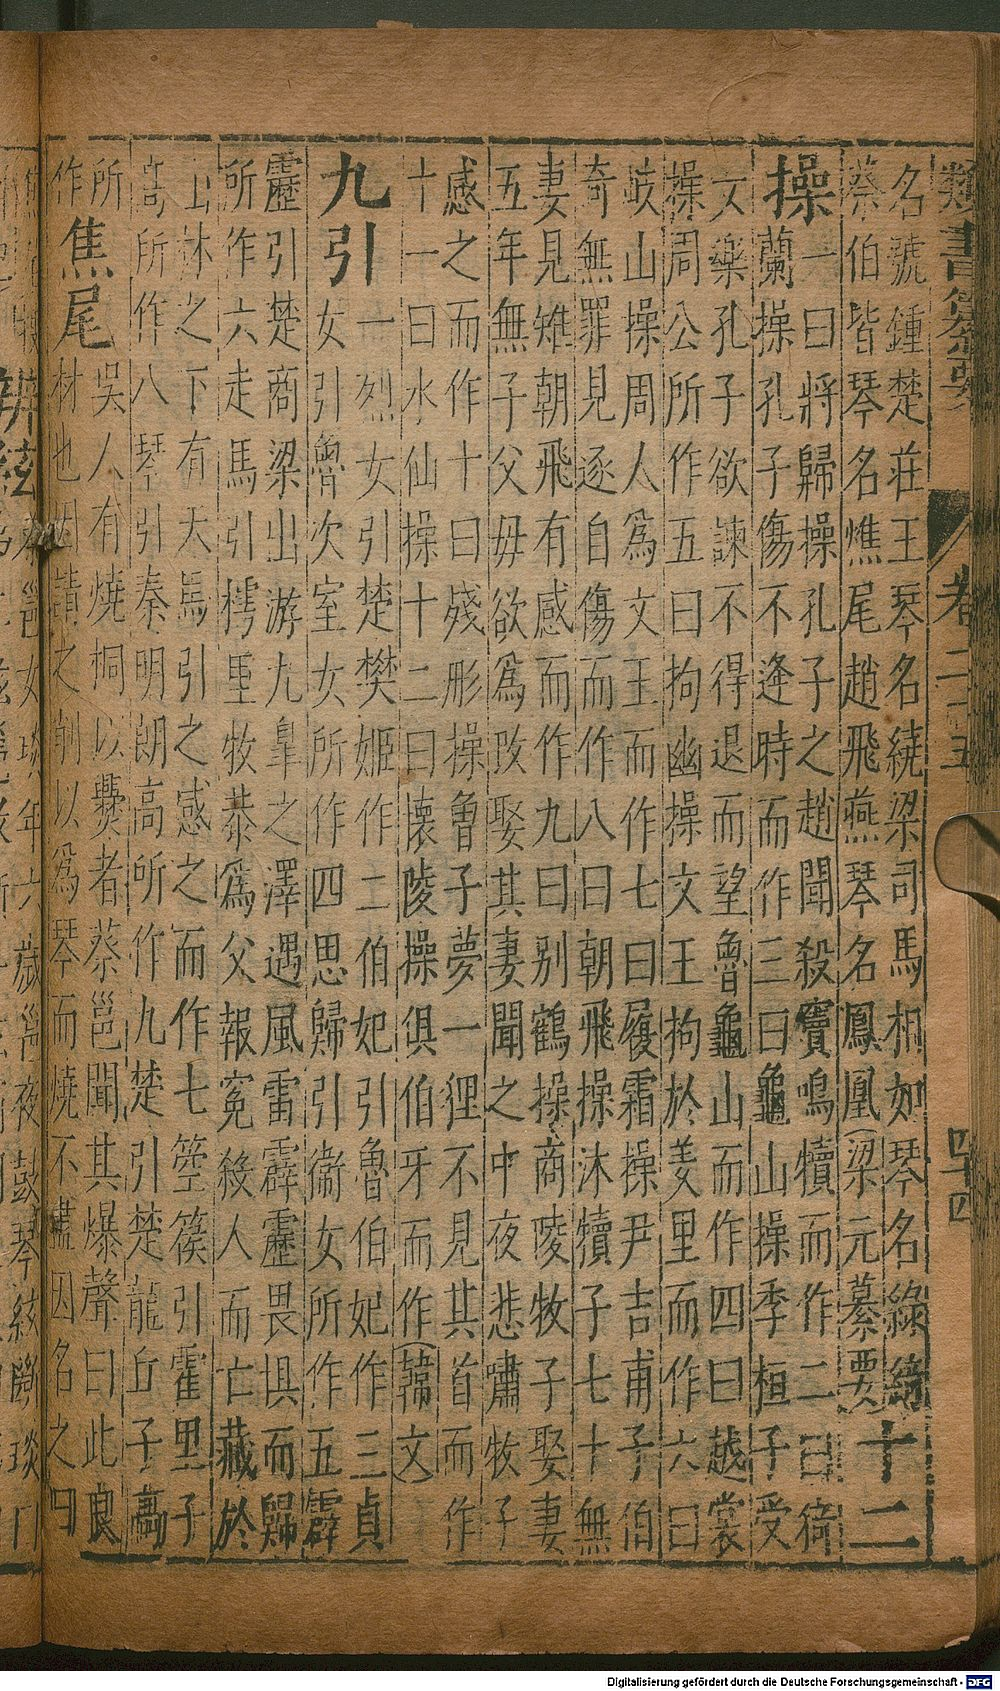 類書纂要 卷二十五 四十四
名號鍾楚莊王琴名繞梁司馬相如琴名綠綺
蔡伯皆琴名燋尾趙飛燕琴名鳳凰(梁元纂要)
十二
操
一曰將歸操孔子之趙聞殺竇鳴犢而作二曰猗
蘭操孔子傷不逢時而作三曰龜山操季桓子受
女樂孔子欲諫不得退而望魯龜山而作四曰越裳
操周公所作五曰拘幽操文王拘於羑里而作六曰
岐山操周人為文王而作七曰履霜操尹吉甫子伯
奇無罪見逐自傷而作八曰朝飛操沐犢子七十無
妻見雉朝飛有感而作九曰別鶴操商陵牧子娶妻
五年無子父毋欲為改娶其妻聞之中夜悲嘯牧子
感之而作十曰殘形操魯子夢一狸不見其首而作
十一曰水仙操十二曰壞陵操俱伯牙而作(韓文)
九引
一烈女引楚樊姬作二伯妃引魯伯妃作三貞
女引魯次室女所作四思歸引衛女所作五霹
靂引楚商梁出游九皐之澤遇風雷霹靂畏懼而歸
所作六走馬引樗里牧恭為父報冤殺人而亡藏於
山林之下有天馬引之感之而作七箜篌引霍里子
高所作八琴引秦明朗高所作九楚引楚龍丘子高
所
作
焦尾
吳人有燒桐以爨者蔡邕聞其爆聲曰此良
材也因請之削以為琴而燒不盡因名之曰
辨絃
邕女琰年六歲邕夜鼓琴絃斷琰
Digitalisierung gefördert durch die Deutsche Forschungsgemeinschaft - DFG